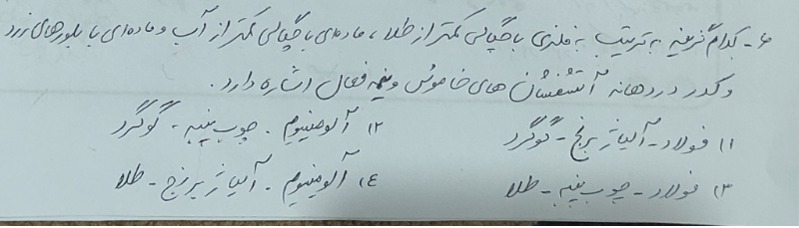 ۶- کدام گزینه به ترتیب به فلزی با چگالی کمتر از طلا، ماده‌ای با چگالی کمتر از آب و ماده‌ای با بلورهای زرد
و کدر در دهانه آتشفشان های خاموش و نیمه فعال اشاره دارد.
۱) فولاد - آلیاژ برنج - گوگرد ۲) آلومینیوم - چوب پنبه - گوگرد
۳) فولاد - چوب پنبه - طلا ۴) آلومینیوم - آلیاژ برنج - طلا